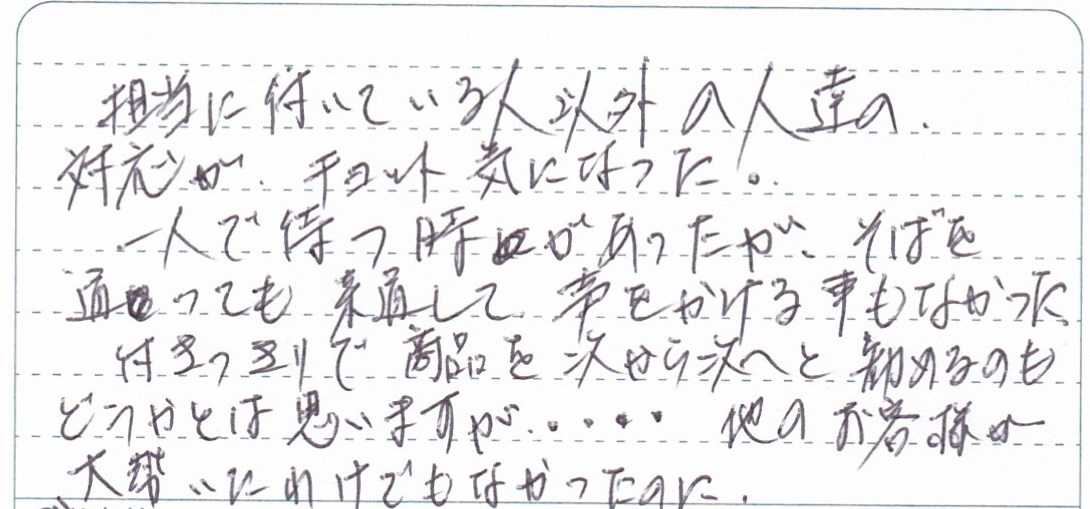 担当に付いている人以外の人達の、
対応が、チョット気になった。
一人で待つ時が あったが、そばを
通っても 素通して、声をかける事もなかった。
付きっきりで 商品を 次から次へと 勧めるのも
どうかとは 思いますが、・・・・ 他の お客様が
大勢いたわけでもなかったのに、